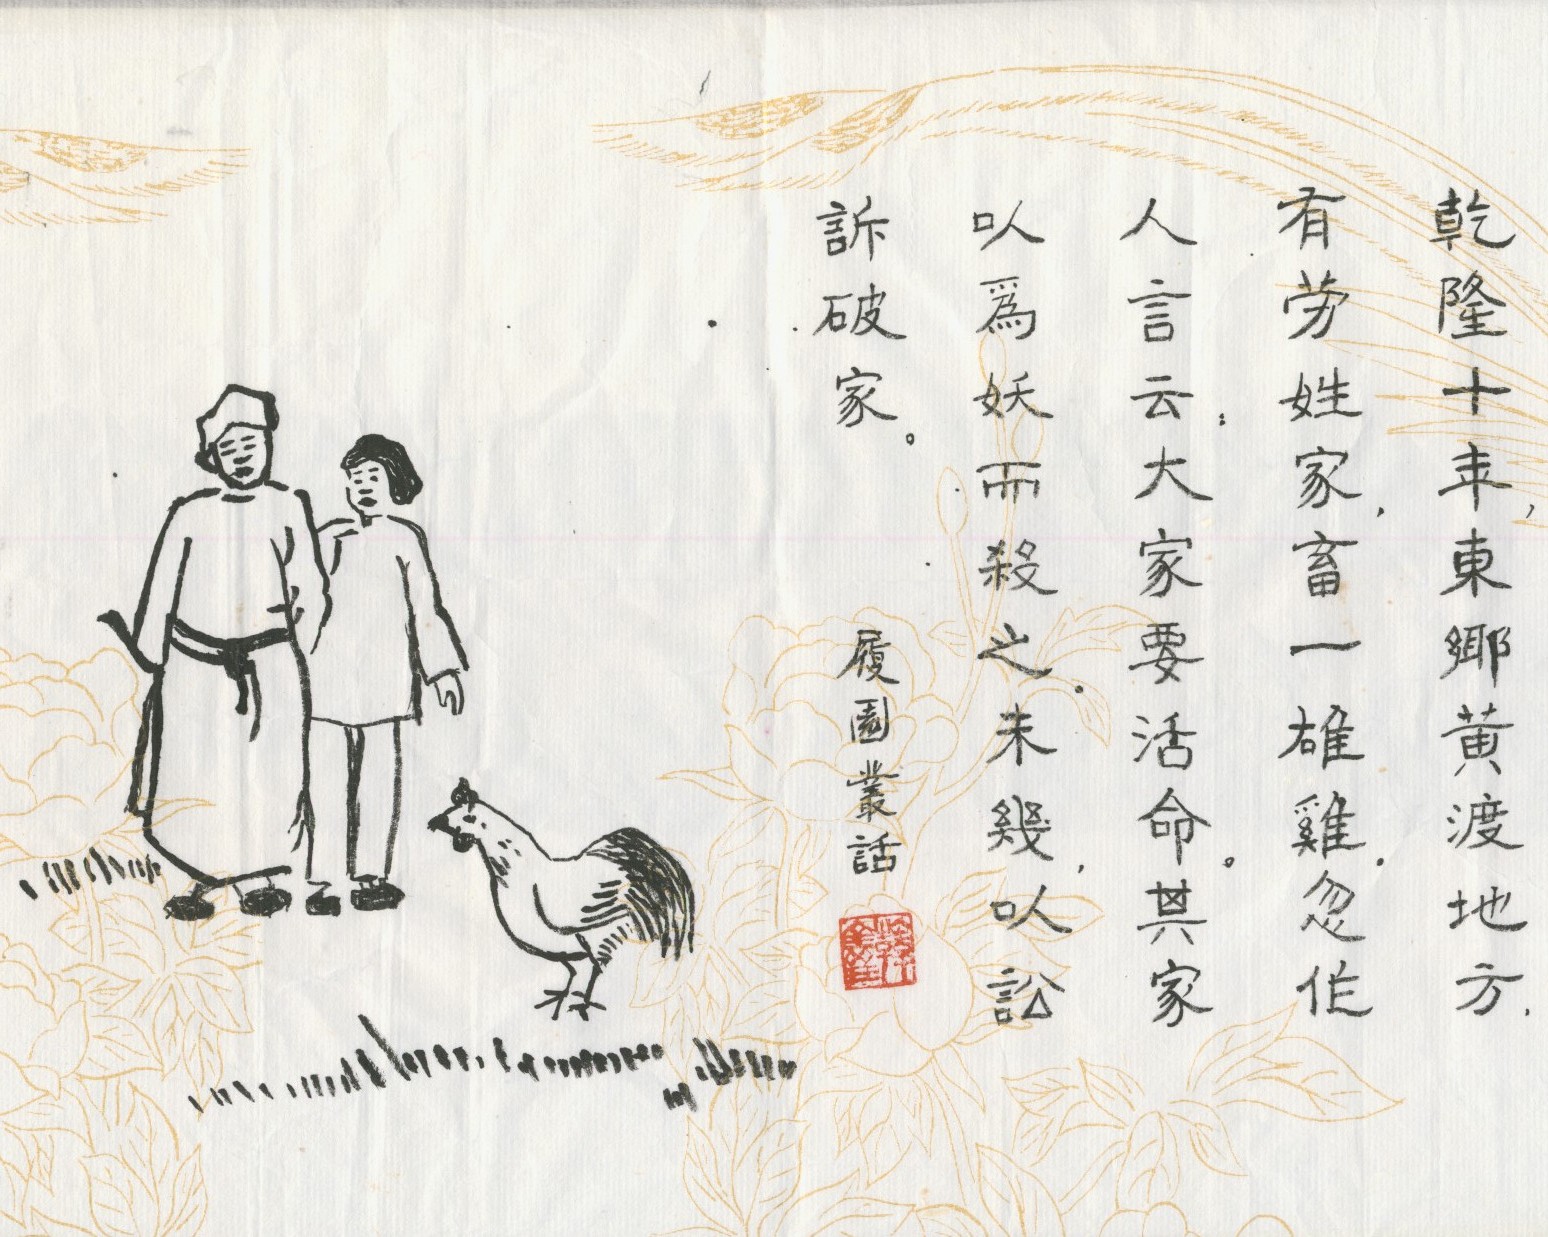 乾隆十年，東鄉黃渡地方，
有勞姓家，畜一雄雞，忽作
人言云：大家要活命。其家
以為妖而殺之，未幾，以訟
訴破家。
履園叢話